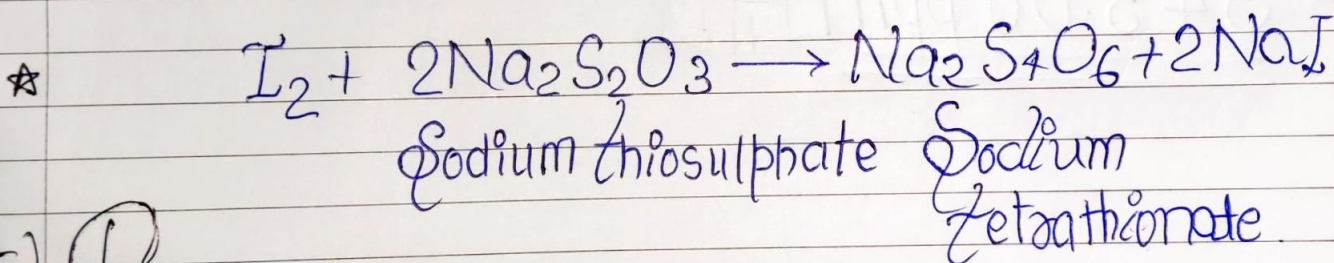 ☆ I₂ + 2Na₂S₂O₃ ⟶ Na₂S₄O₆ + 2NaI
Sodium thiosulphate Sodium
tetrathionate.